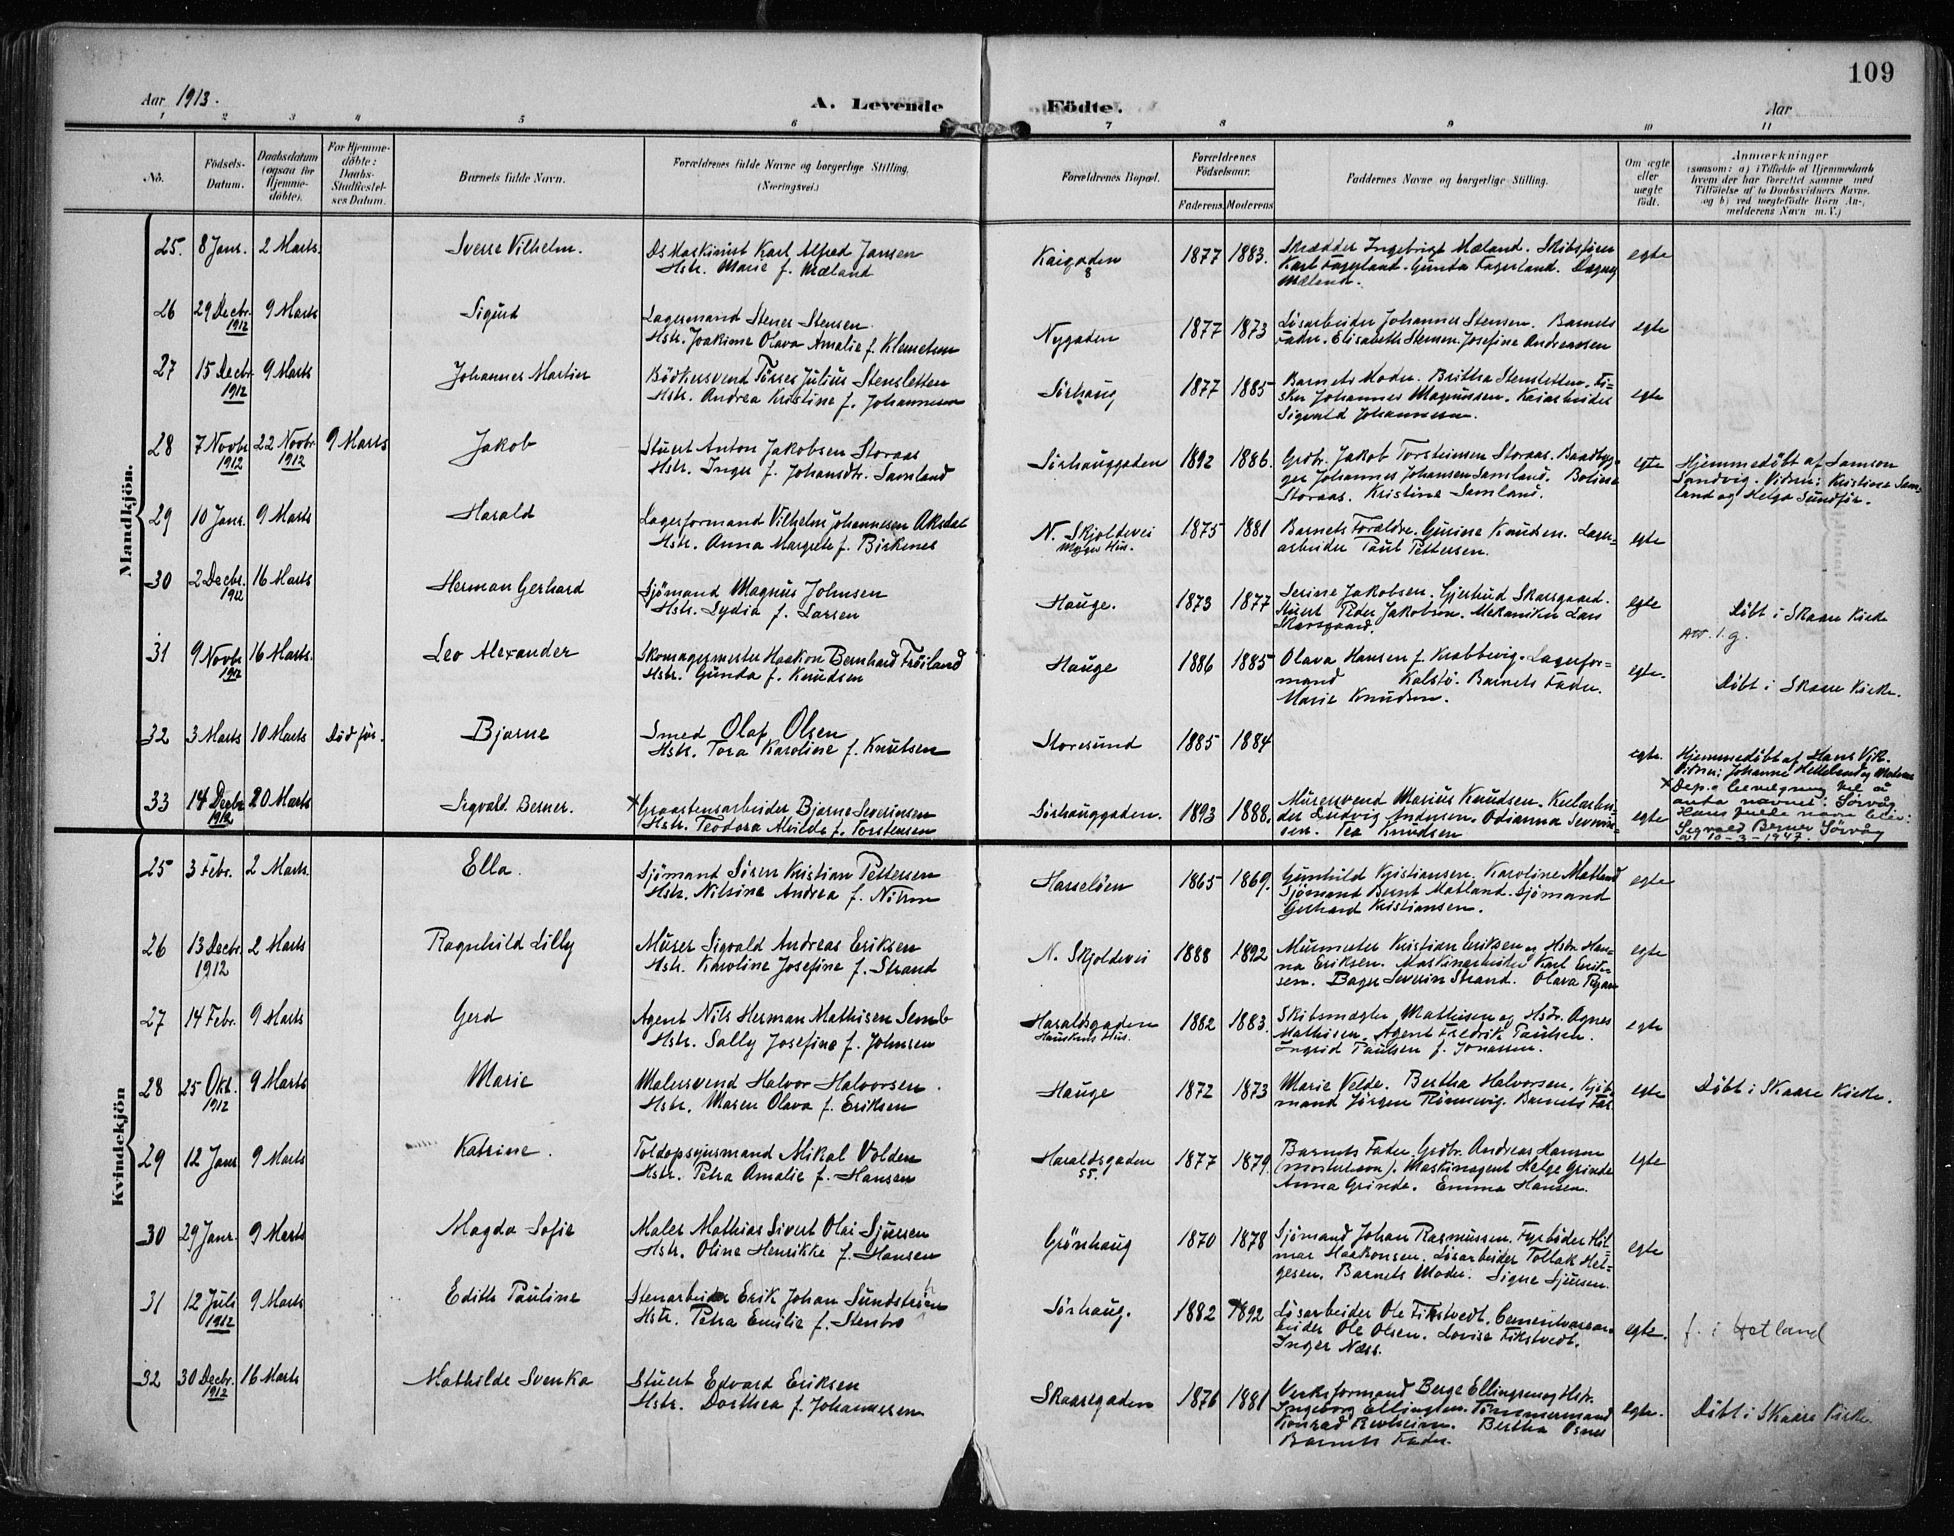 109
Aar 1913.
A. Levende Födte.
Aar
1 2 3 4 5 6 7 8 9 10 11
No.
Födsels-
Datum.
Daabsdatum
(ogsaa for
Hjemme-
döbte).
For Hjemme-
döbte:
Daabs-
Stadfæstel-
ses Datum.
Barnets fulde Navn.
Forældrenes fulde Navne og borgerlige Stilling.
(Næringsvei.)
Forældrenes Bopæl.
Forældrenes
Födselsaar.
Faderens. Moderens.
Faddernes Navne og borgerlige Stilling.
Om ægte
eller
uægte
födt.
Anmærkninger
(saasom: a) i Tilfælde af Hjemmedaab
hvem der har forrettet samme med
Tilföielse af to Daabsvidners Navne.
og b) ved uægtefödte Börn An-
melderens Navn m. V.)
Mandkjön.
25. 8 Janr. 2 Marts. Sverre Vilhelm.
Ds Maskinist Karl Alfred Jansen
Hstr. Marie f. Mæland
Kaigaden
8
1877 1883.
Skrædder Ingebrigt Mæland. Skibsfører
Karl Fagerland. Gunda Fagerland. Dagny
Mæland.
egte
26 29 Decbr. 1912 9 Marts Sigurd
Lagermand Stener Stensen
Hstr. Joakime Olava Amalie f. Klemetsen
Nygaden
1877 1873
Løsarbeider Johannes Stensen. Barnets
Fader. Elisabeth Stensen. Josefine Andreassen
egte
27 15 Decbr. 1912 9 Marts Johannes Martin
Bødkersvend Tørres Julius Stensletten
Hstr. Andrea Kristine f. Johannesen
Sørhaug
1877 1885
Barnets Moder. Britha Stensletten. Fi-
sker Johannes Magnussen. Kaiarbeider
Sigvald Johannesen.
egte
28 7 Novbr 1912 22 Novbr. 1912 9 Marts Jakob
Stuert Anton Jakobsen Storaas
Hstr. Inger f. Johansdtr. Samland
Sørhauggaden
1892 1886.
Grdbr. Jakob Torsteinsen Storaas. Baadbyg-
ger Johannes Johansen Samland. Boline
Storaas. Kristine Samland.
egte
Hjemmedøbt af Samson
Sandvig. Vidner: Kristine Sam-
land og Helga Sundfør.
29 10 Janr. 9 Marts Harald
Lagerformand Vilhelm Johannesen Aksdal
Hstr. Anna Margrete f. Birkenes
N. Skjoldevei
1875 1881
Barnets Forældre. Gurine Knudsen. Lager-
arbeider Paul Pettersen.
egte
30 2 Decbr. 1912 16 Marts Herman Gerhard
Sjømand Magnus Johnsen
Hstr. Lydia f. Larsen
Hauge.
1873 1877
Serine Jakobsen. Gjertrud Skarsgaard.
Stuert Peder Jakobsen. Mekaniker Lars
Skarsgaard.
egte
Døbt i Skaare Kirke
31 9 Novbr 1912 16 Marts. Leo Alexander
Skomagermester Haakon Bernhard Frøiland
Hstr. Gunda f. Knudsen
Hauge
1886 1885
Olava Hansen f. Krabbevig. Lagerfor-
mand Kalstø. Barnets Fader.
Marie Knudsen.
egte.
Døbt i Skaare Kirke.
32 3 Marts 10 Marts Død før. Bjarne
Smed Olaf Olsen
Hstr. Tora Karoline f. Knutsen
Storesund
1885 1884
egte.
Hjemmedøbt af Hans Vik.
Vidner: Johanne Hetteland og Moderen
33 14 Decbr 1912 20 Marts Sigvald Berner.
x Graastensarbeider Bjarne Severinsen
Hstr. Teodora Alvilde f. Torstensen
Sørhauggaden.
1893 1888.
Murersvend Marius Knudsen. Kularbei-
der Ludvig Andersen. Odianna Severin-
sen. Tea Knudsen
egte
x Dep.s bevilgning til å
anta navnet: Sørvåg
Hans fulde navn blir:
Sigvald Berner Sørvåg
10-3-1947.
Kvindekjön
25 3 Febr. 2 Marts. Ella.
Sjømand Søren Kristian Pettersen
Hstr. Nilsine Andrea f. Nilsen
Hasseløen
1865 1869.
Gunhild Kristiansen. Karoline Matland
Sjømand Bernt Matland. Sjømand
Gerhard Kristiansen.
egte
26 13 Decbr. 1912 2 Marts Ragnhild Lilly
Murer Sigvald Andreas Eriksen
Hstr. Karoline Josefine f. Strand
N. Skjoldevei
1888 1892
Murmester Kristian Eriksen og Hstr. Han-
na Eriksen. Maskinarbeider Karl Erik-
sen. Bager Severin Strand. Olava
egte
27 14 Febr. 9 Marts Gerd
Agent Nils Herman Mathisen Semb
Hstr. Sally Josefine f. Johnsen
Haraldsgaden
Hauskens Hus.
1882 1883.
Skibsmægler Mathisen og Hstr. Agnes
Mathisen. Agent Fredrik Paulsen.
Ingrid Paulsen f. Jonassen.
egte
28 25 Okt. 1912 9 Marts Marie
Malersvend Halvor Halvorsen.
Hstr. Maren Olava f. Eriksen
Hauge
1872 1873
Marie Velde. Bertha Halvorsen. Kjøb-
mand Jørgen Rønnevig. Barnets Far.
egte
Døbt i Skaare Kirke.
29 12 Janr 9 Marts Katrine.
Toldopsynsmand Mikal Volden
Hstr. Petra Amalie f. Hansen
Haraldsgaden
55.
1877 1879
Barnets Fader. Grdbr. Andreas Hansen
Maskinagent Helge Grinde
Anna Grinde. Emma Hansen.
egte
30 29 Janr. 9 Marts Magda Sofie
Maler Mathias Sivert Olai Sjursen
Hstr. Oline Henrikke f. Hansen
Grønhaug
1870 1878
Sjømand Johan Rasmussen. Fyrbøder Hil-
mar Haakonsen. Løsarbeider Tollak Hel-
gesen. Barnets Moder. Signe Sjursen.
egte
31 12 Juli 1912 9 Marts Edith Pauline
Stenarbeider Erik Johan Sundstrøm
Hstr. Petra Emilie f. Stenbro
Sørhaug.
1882 1892
Løsarbeider Ole Fikstvedt. Cementvarear-
beider Ole Olsen. Lovise Fikstvedt.
Inger Næss.
egte.
f. i Hetland
32 30 Decbr. 1912 16 Marts Mathilde Svenka
Stuert Edvard Eriksen
Hstr. Dorthea f. Johannesen
Skaaregaden
1876 1881
Verksformand Berge Ellingsen og Hstr.
Ingeborg Ellingsen. Tømmermand
Konrad Rovheim. Bertha Osnes
Barnets Fader.
egte.
Døbt i Skaare Kirke.